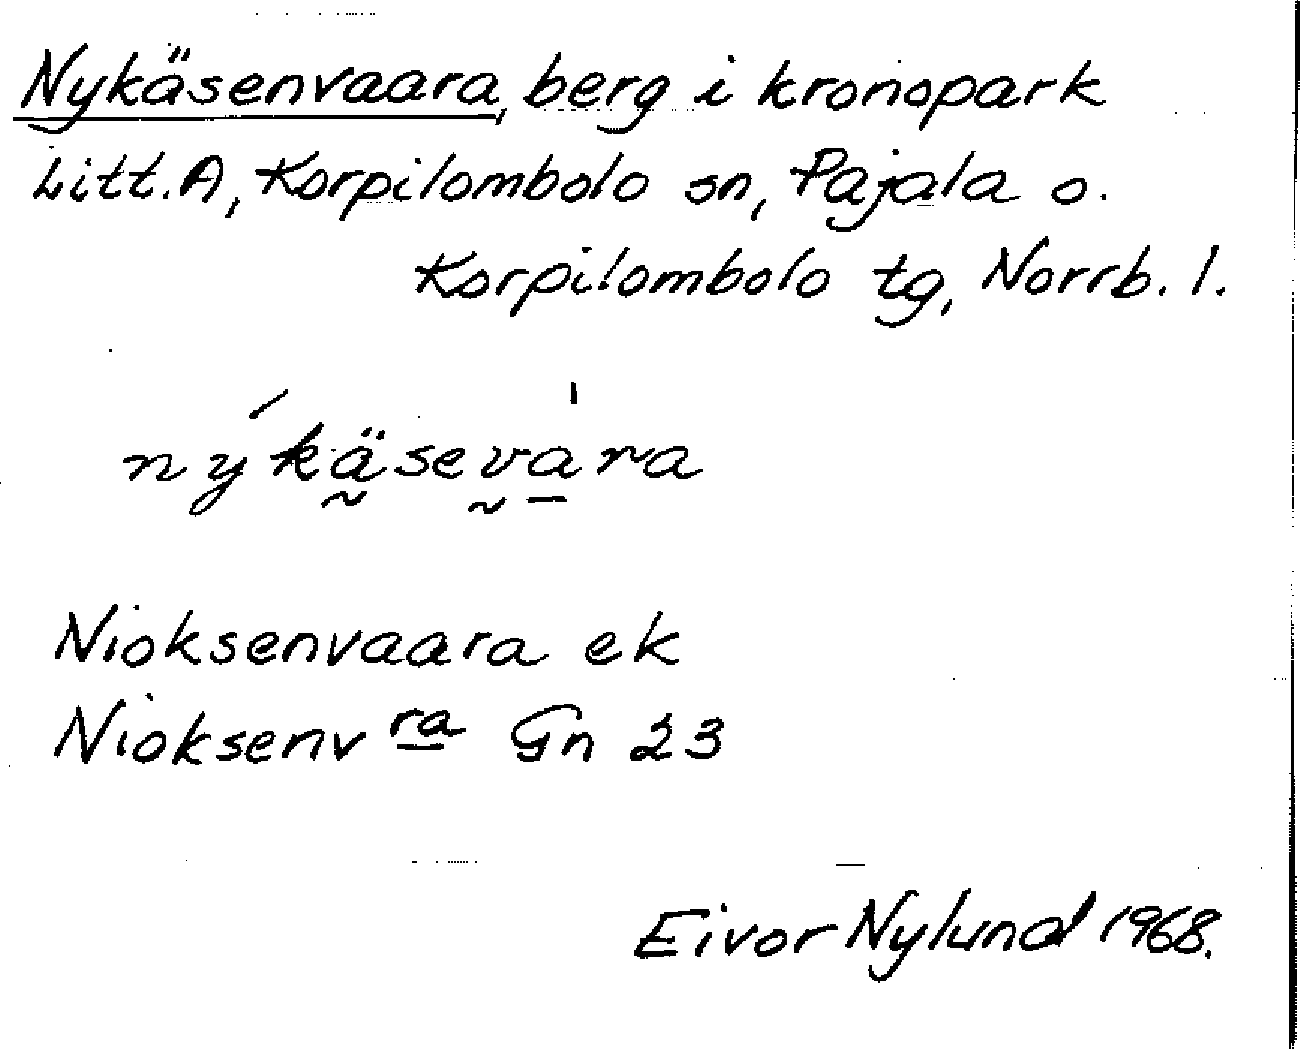 Nykäsenvaara, berg i kronopark
Litt. A, Korpilombolo sn, Pajala o.
Korpilombolo tg, Norrb. l.
nýkä̰sev̰a̱̍ra
Nioksenvaara ek
Nioksenv ra Gn 23
Eivor Nylund 1968.